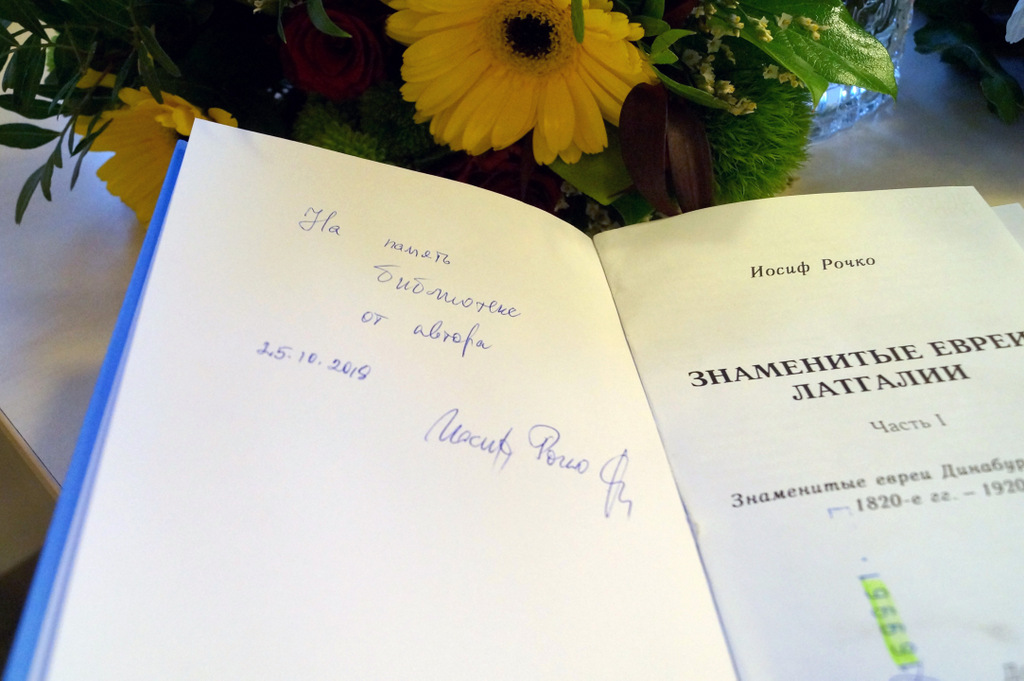 На память
библиотеке
от автора
25.10.2019
Иосиф Рочко
Иосиф Рочко
ЗНАМЕНИТЫЕ ЕВРЕИ
ЛАТГАЛИИ
Часть 1
Знаменитые евреи
1820-е гг. – 1920